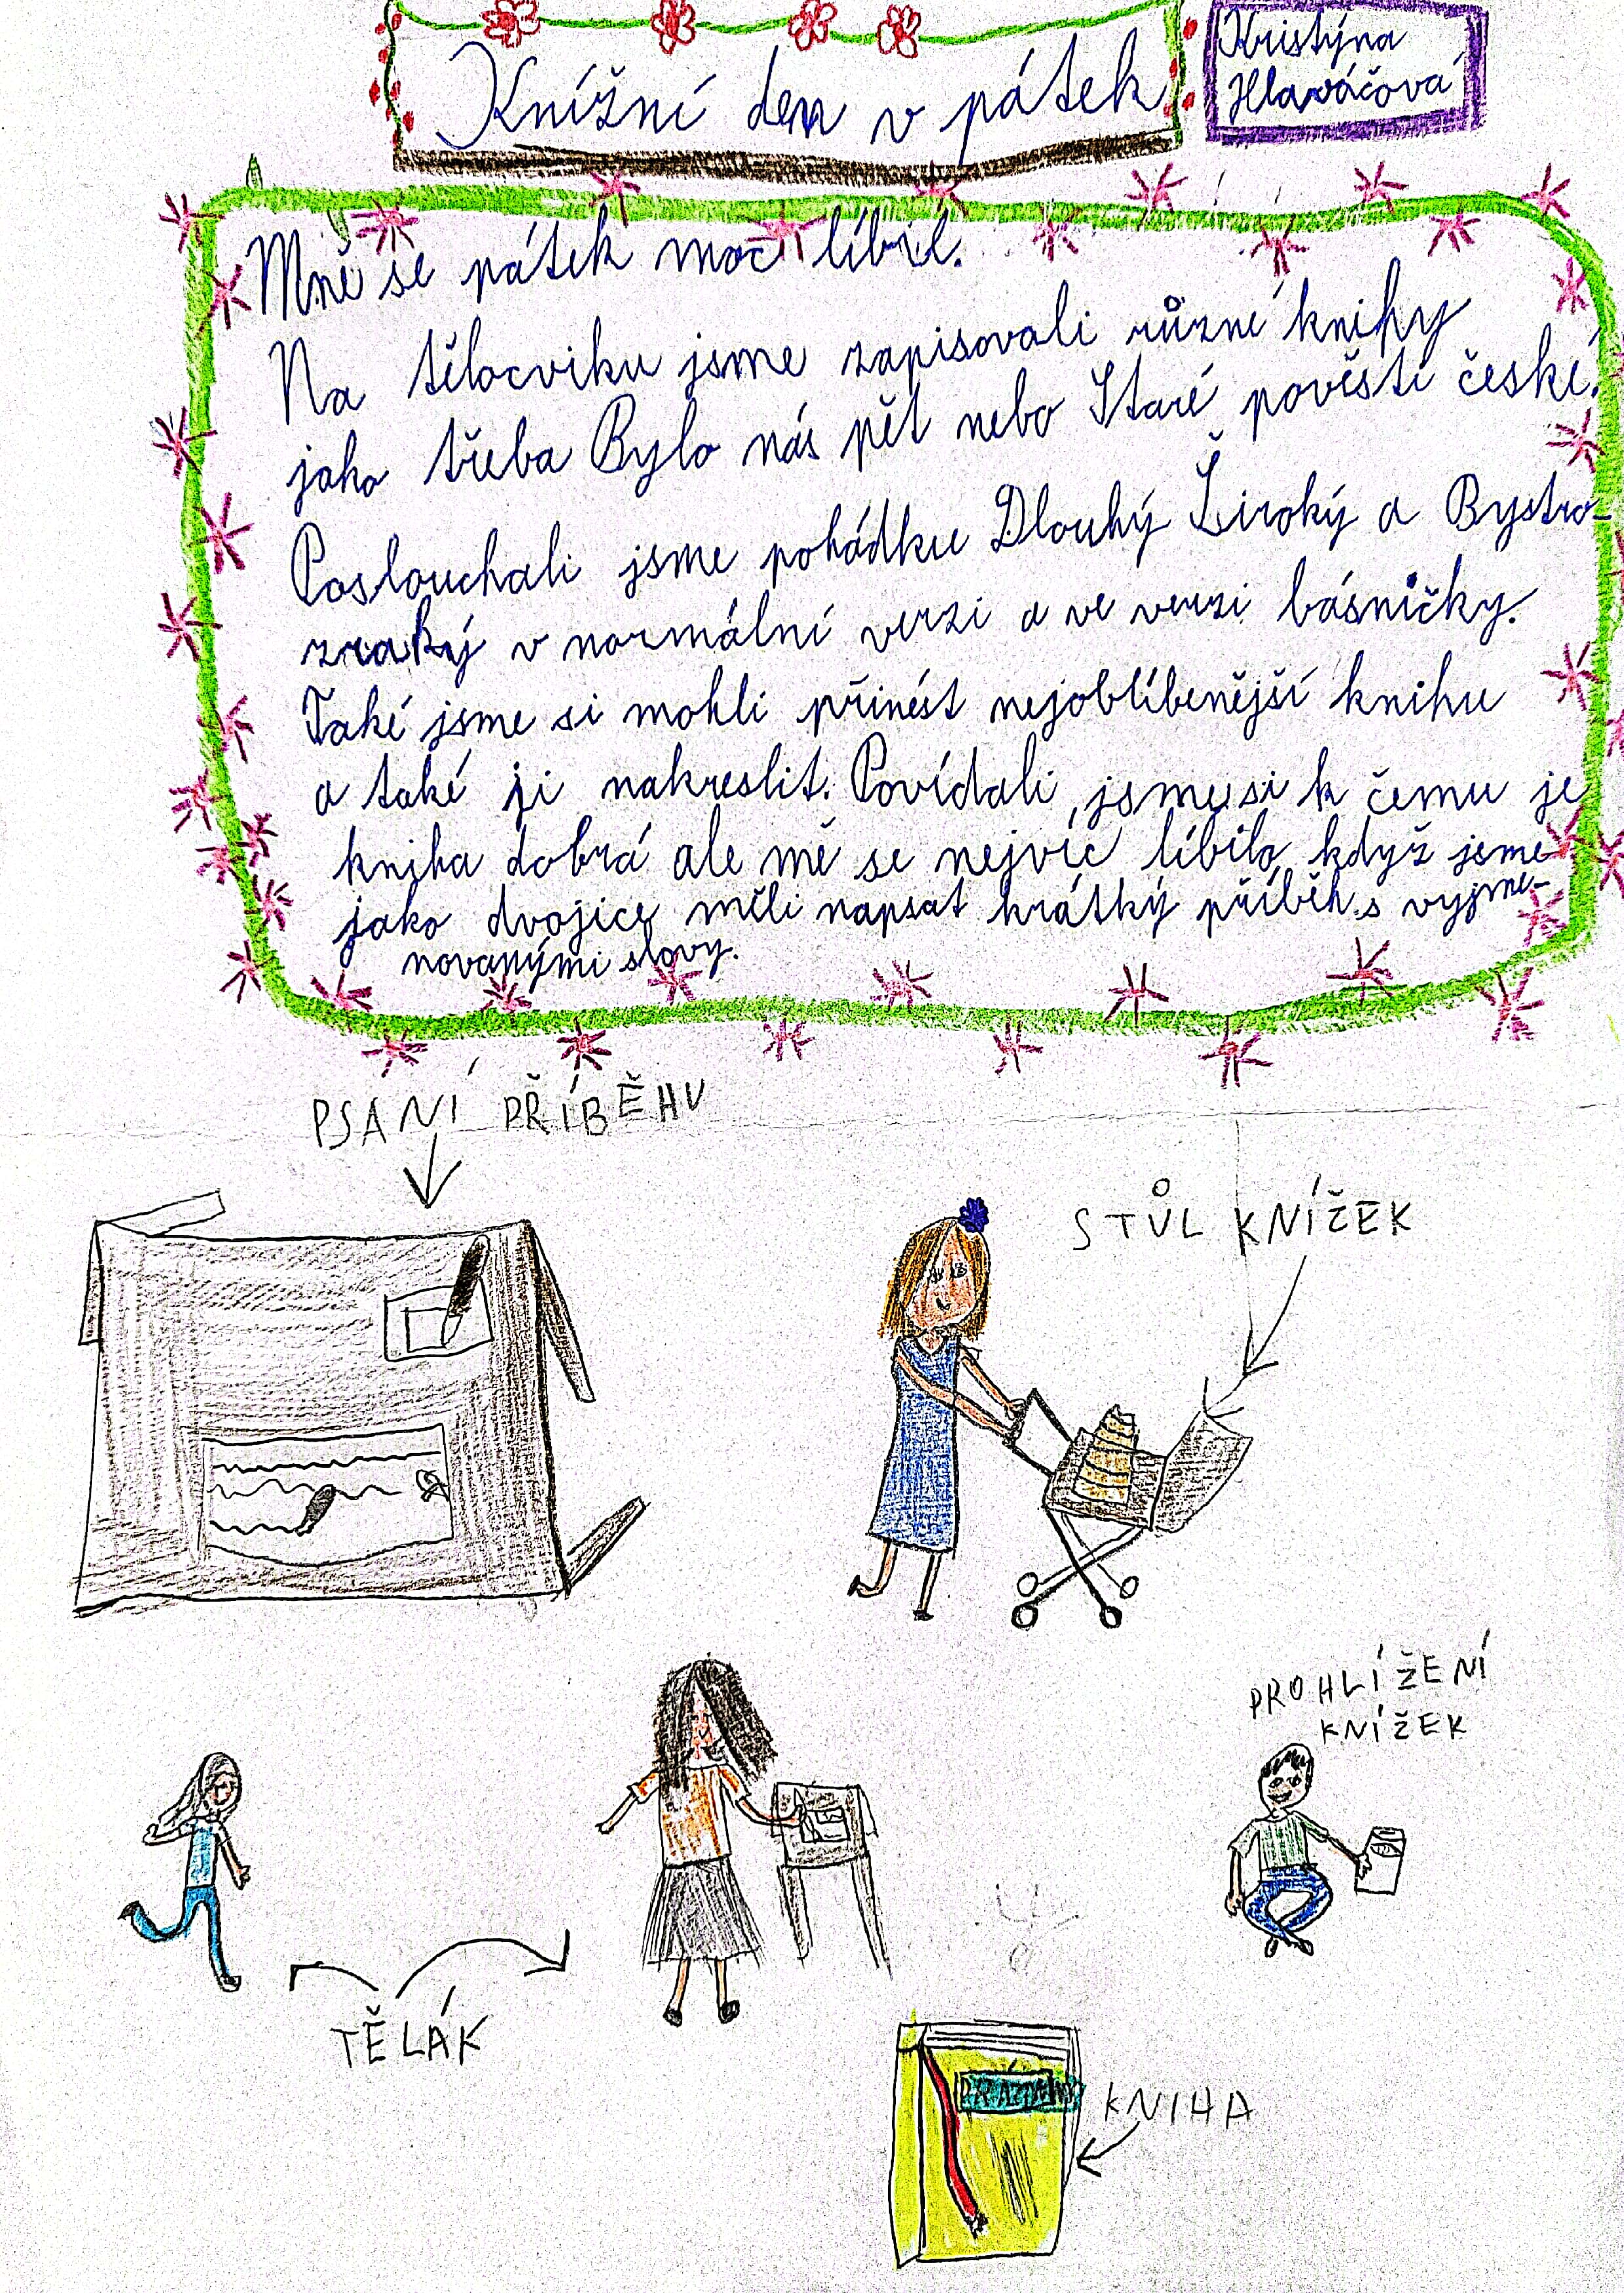 Knížní den v pátek
Kristýna
Hlaváčová
Mně se pátek moc líbil.
Na tělocviku jsme zapisovali různé knihy
jako třeba Bylo nás pět nebo Staré pověsti české.
Poslouchali jsme pohádku Dlouhý Široký a Bystro-
zraký v normální verzi a ve verzi básničky.
Také jsme si mohli přinést nejoblíbenější knihu
a také ji nakreslit. Povídali jsme si k čemu je
kniha dobrá ale mě se nejvíc líbilo, když jsme
jako dvojice měli napsat krátký příběh s vyjme-
novanými slovy.
PSANÍ PŘÍBĚHU
STŮL KNÍŽEK
PROHLÍŽENÍ
KNÍŽEK
TĚLÁK
KNIHA